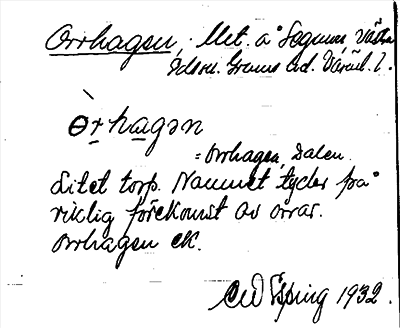 Orrhagen. Met. å Segmon, Västra
Edsv. Grums hd. Värml. l.
Òrhagən
= Orrhagen, Dalen.
Litet torp. Namnet tyder på
riklig förekomst av orrar.
Orrhagen ek.
1932.